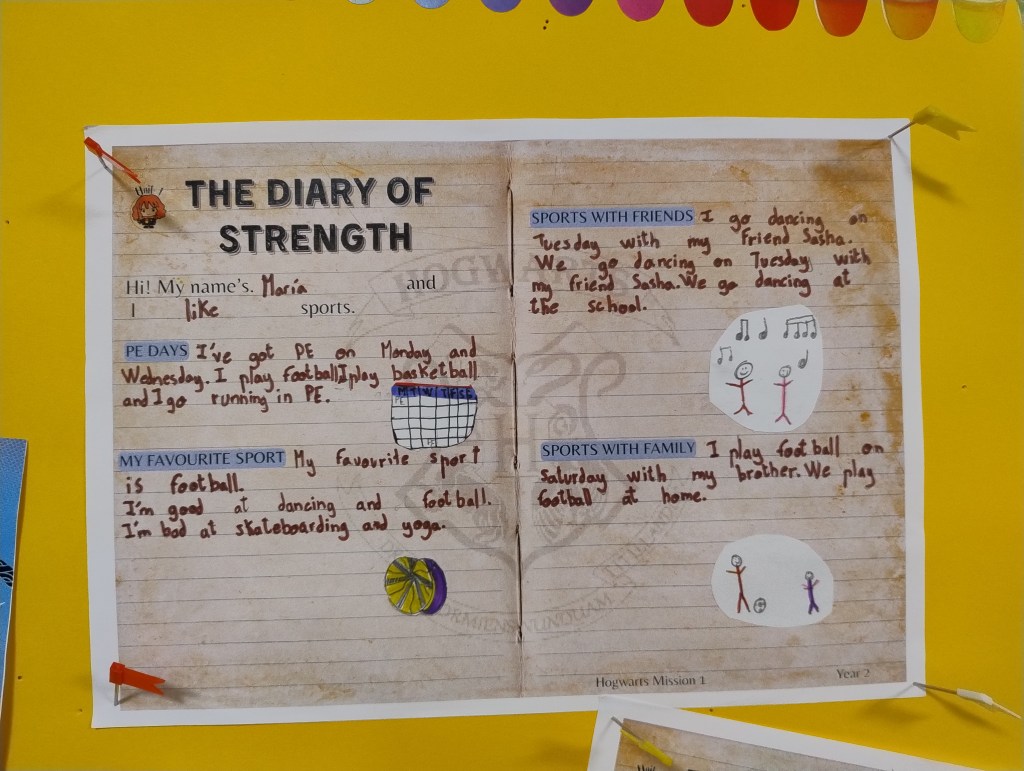 Unit 1
THE DIARY OF
STRENGTH
Hi! My name's. María and
I like sports.
PE DAYS I've got PE on Monday and
Wednesday. I play football I play basketball
and I go running in PE.
M T W T F S S
PE
PE
MY FAVOURITE SPORT My favourite sport
is football.
I'm good at dancing and football.
I'm bad at skateboarding and yoga.
SPORTS WITH FRIENDS I go dancing on
Tuesday with my friend Sasha.
We go dancing on Tuesday with
my friend Sasha. We go dancing at
the school.
SPORTS WITH FAMILY I play football on
Saturday with my brother. We play
football at home.
HOGWARTS
DORMIENS NUNQUAM
Hogwarts Mission 1
Year 2